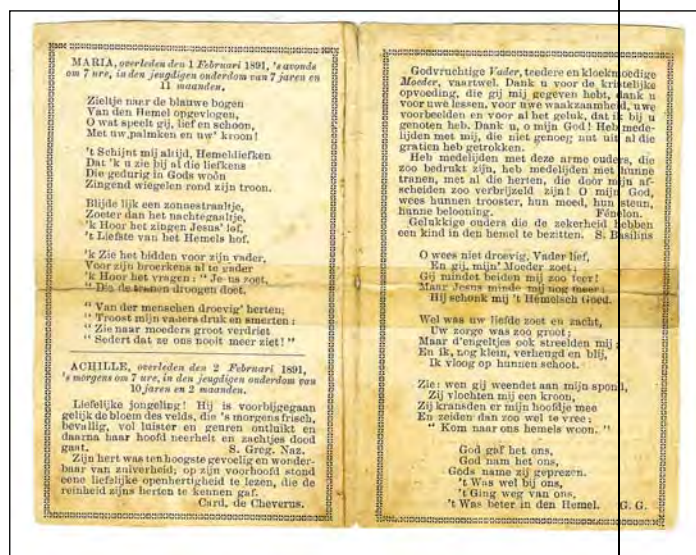 MARIA, overleden den 1 Februari 1891, 's avonds
om 7 ure, in den jeugdigen ouderdom van 7 jaren en
11 maanden.
Zieltje naar de blauwe bogen
Van den Hemel opgevlogen,
O wat speelt gij, lief en schoon,
Met uw palmken en uw' kroon!
't Schijnt mij altijd, Hemelliefken
Dat 'k u zie bij al die liefkens
Die gedurig in Gods woôn
Zingend wiegelen rond zijn troon.
Blijde lijk een zonnestraaltje,
Zoeter dan het nachtegaaltje,
'k Hoor het zingen Jesus' lof,
't Liefste van het Hemels hof.
'k Zie het bidden voor zijn vader,
Voor zijn broerkens al te gader
'k Hoor het vragen: " Jesus zoet,
" Die de tranen droogen doet.
" Van der menschen droevig' herten;
" Troost mijn vaders druk en smerten:
" Zie naar moeders groot verdriet
" Sedert dat ze ons nooit meer ziet! "
ACHILLE, overleden den 2 Februari 1891,
's morgens om 7 ure, in den jeugdigen ouderdom van
10 jaren en 2 maanden.
Liefelijke jongeling! Hij is voorbijgegaan
gelijk de bloem des velds, die 's morgens frisch,
bevallig, vol luister en geuren ontluikt en
daarna haar hoofd neerhelt en zachtjes dood
gaat. S. Greg. Naz.
Zijn hert was ten hoogste gevoelig en wonder-
baar van zuiverheid; op zijn voorhoofd stond
eene liefelijke openhertigheid te lezen, die de
reinheid zijns herten te kennen gaf.
Card. de Cheverus.
Godvruchtige Vader, teedere en kloekmoedige
Moeder, vaartwel. Dank u voor de kristelijke
opvoeding, die gij mij gegeven hebt, dank u
voor uwe lessen, voor uwe waakzaamheid, uwe
voorbeelden en voor al het geluk, dat ik bij u
genoten heb. Dank u, o mijn God! Heb mede-
lijden met mij, die niet genoeg nut uit al die
gratien heb getrokken.
Heb medelijden met deze arme ouders, die
zoo bedrukt zijn, heb medelijden met hunne
tranen, met al die herten, die door mijn af-
scheiden zoo verbrijzeld zijn! O mijn God,
wees hunnen trooster, hun moed, hun steun,
hunne belooning. Fénelon.
Gelukkige ouders die de zekerheid hebben
een kind in den hemel te bezitten. S. Basilius
O wees niet droevig, Vader lief,
En gij, mijn' Moeder zoet;
Gij mindet beiden mij zoo teer!
Maar Jesus minde mij nog meer:
Hij schonk mij 't Hemelsch Goed.
Wel was uw liefde zoet en zacht,
Uw zorge was zoo groot;
Maar d'engeltjes ook streelden mij;
En ik, nog klein, verheugd en blij,
Ik vloog op hunnen schoot.
Zie: wen gij weendet aan mijn spond,
Zij vlochten mij een kroon,
Zij kransden er mijn hoofdje mee
En zeiden dan zoo wel te vree:
" Kom naar ons hemels woon. "
God gaf het ons,
God nam het ons,
Gods name zij geprezen.
't Was wel bij ons,
't Ging weg van ons,
't Was beter in den Hemel. G. G.